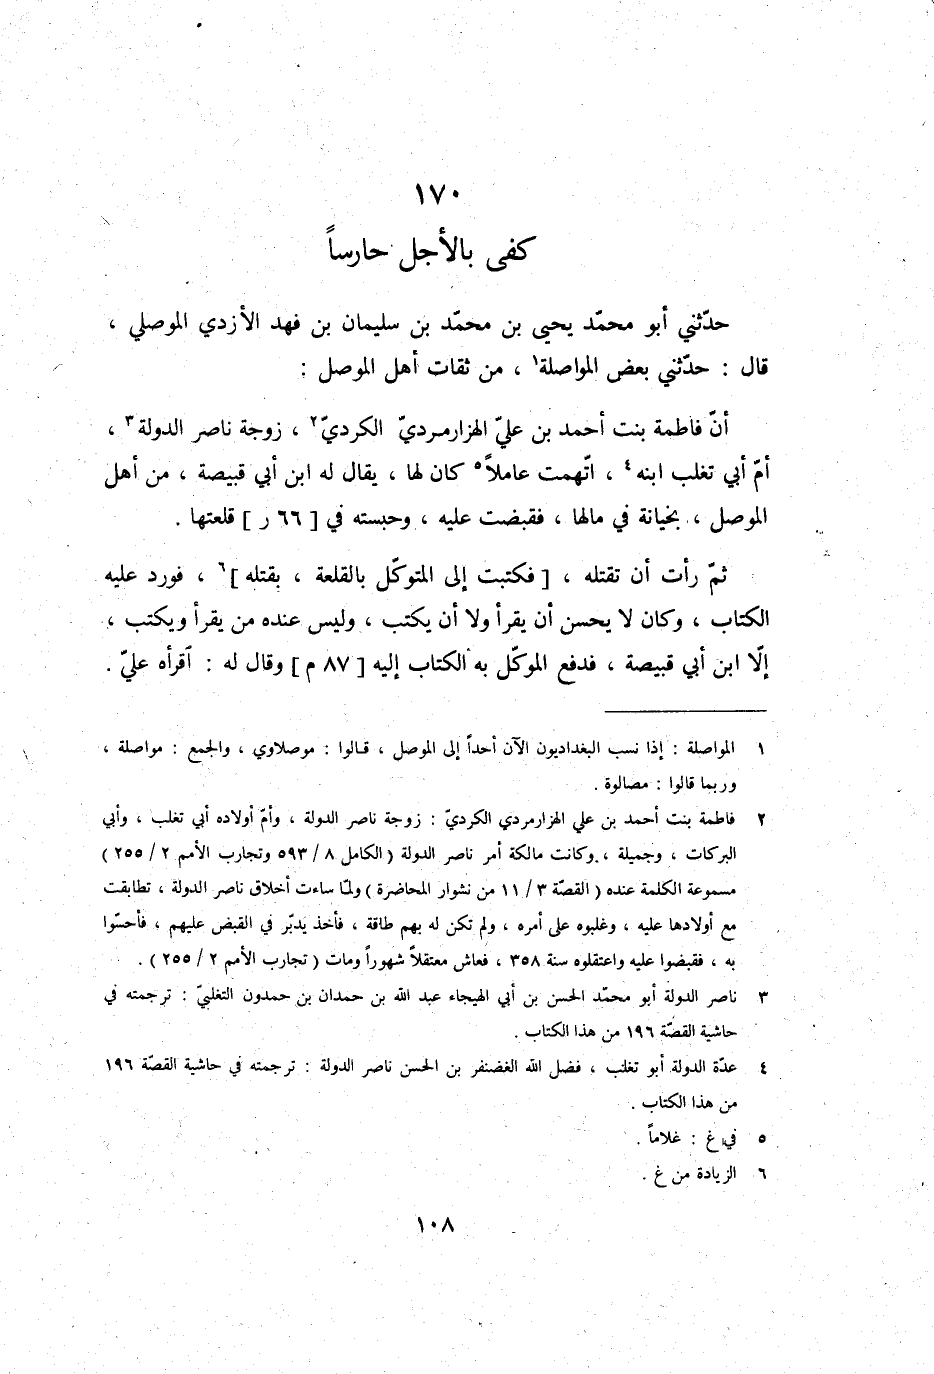 ١٧٠
كفى بالأجل حارساً
حدّثني أبو محمّد يحيى بن محمّد بن سليمان بن فهد الأزدي الموصلي ،
قال : حدّثني بعض المواصلة١ ، من ثقات أهل الموصل :
أنّ فاطمة بنت أحمد بن عليّ الهزارمرديّ الكرديّ٢ ، زوجة ناصر الدولة٣ ،
أمّ أبي تغلب ابنه٤ ، اتّهمت عاملاً٥ كان لها ، يقال له ابن أبي قبيصة ، من أهل
الموصل ، بخيانة في مالها ، فقبضت عليه ، وحبسته في [ ٦٦ ر ] قلعتها .
ثمّ رأت أن تقتله ، [ فكتبت إلى المتوكّل بالقلعة ، بقتله ]٦ ، فورد عليه
الكتاب ، وكان لا يحسن أن يقرأ ولا أن يكتب ، وليس عنده من يقرأ ويكتب ،
إلّا ابن أبي قبيصة ، فدفع الموكّل به الكتاب إليه [ ٨٧ م ] وقال له : اقرأه عليّ .
١ المواصلة : إذا نسب البغداديون الآن أحداً إلى الموصل ، قالوا : موصلاوي ، والجمع : مواصلة ،
وربما قالوا : مصالوة .
٢ فاطمة بنت أحمد بن علي الهزارمردي الكرديّ : زوجة ناصر الدولة ، وأمّ أولاده أبي تغلب ، وأبي
البركات ، وجميلة ، وكانت مالكة أمر ناصر الدولة ( الكامل ٨ / ٥٩٣ وتجارب الأمم ٢ / ٢٥٥ )
مسموعة الكلمة عنده ( القصّة ٣ / ١١ من نشوار المحاضرة ) ولمّا ساءت أخلاق ناصر الدولة ، تطابقت
مع أولادها عليه ، وغلبوه على أمره ، ولم تكن له بهم طاقة ، فأخذ يدبّر في القبض عليهم ، فأحسّوا
به ، فقبضوا عليه واعتقلوه سنة ٣٥٨ ، فعاش معتقلاً شهوراً ومات ( تجارب الأمم ٢ / ٢٥٥ ) .
٣ ناصر الدولة أبو محمّد الحسن بن أبي الهيجاء عبد الله بن حمدان بن حمدون التغلبيّ : ترجمته في
حاشية القصّة ١٩٦ من هذا الكتاب .
٤ عدّة الدولة أبو تغلب ، فضل الله الغضنفر بن الحسن ناصر الدولة : ترجمته في حاشية القصّة ١٩٦
من هذا الكتاب .
٥ في غ : غلاماً .
٦ الزيادة من غ .
١٠٨